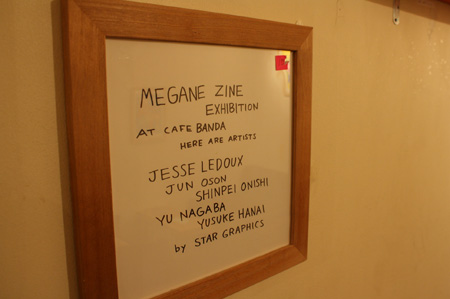 MEGANE ZINE
EXHIBITION
AT CAFE BANDA
HERE ARE ARTISTS
JESSE LEDOUX
JUN OSON
SHINPEI ONISHI
YU NAGABA
YUSUKE HANAI
by STAR GRAPHICS